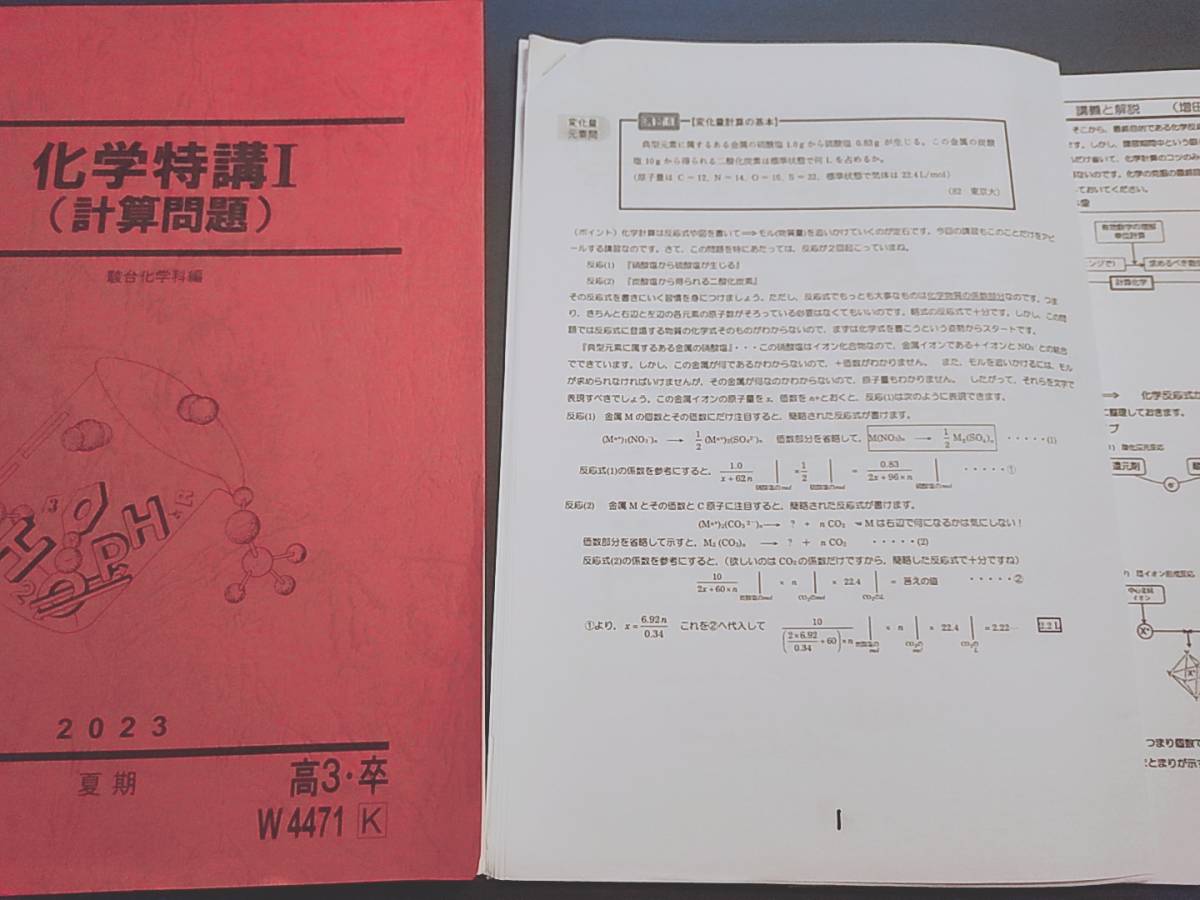 化学特講I
(計算問題)
駿台化学科編
2023
夏期
高3・卒
W4471 K
変化量
元素問
【変化量計算の基本】
典型元素に属するある金属の硝酸塩 1.0g から硫酸塩 0.83g が生じる。この金属の炭酸
塩 10g から得られる二酸化炭素は標準状態で何 L を占めるか。
(原子量は C=12、N=14、O=16、S=32、標準状態で気体は 22.4L/mol)
(82 東京大)
(ポイント) 化学計算は反応式や図を書いて⟹モル(物質量)を追いかけていくのが定石です。今回の講習もこのことだけをアピ
ールする講習なのです。さて、この問題を特にあたっては、反応が2回起こっていまね。
反応(1) 『硝酸塩から硫酸塩が生じる』
反応(2) 『炭酸塩から得られる二酸化炭素』
その反応式を書きにいく習慣を身につけましょう。ただし、反応式でもっとも大事なものは化学物質の係数部分なのです。つま
り、きちんと右辺と左辺の各元素の原子数がそろっている必要はなくてもいいのです。略式の反応式で十分です。しかし、この問
題では反応式に登場する物質の化学式そのものがわからないので、まずは化学式を書こうという姿勢からスタートです。
『典型元素に属するある金属の硝酸塩』・・・この硝酸塩はイオン化合物なので、金属イオンである+イオンと NO₃⁻ との結合
でできています。しかし、この金属が何であるかわからないので、+価数がわかりません。 また、モルを追いかけるには、モル
が求められなければいけませんが、その金属が何なのかわからないので、原子量もわかりません。 したがって、それらを文字で
表現すべきでしょう。この金属イオンの原子量を x、価数を n+とおくと、反応(1)は次のように表現できます。
反応(1) 金属 M の個数とその価数にだけ注目すると、簡略された反応式が書けます。
(Mⁿ⁺)₁(NO₃⁻)ₙ ⟶ 1/2 (Mⁿ⁺)₂(SO₄²⁻)ₙ 価数部分を省略して、 M(NO₃)ₙ ⟶ 1/2 M₂(SO₄)ₙ ・・・・・(1)
反応式(1)の係数を参考にすると、 1.0/(x+62n) | 硝酸塩のmol × 1/2 | 硫酸塩のmol = 0.83/(2x+96×n) | 硫酸塩のmol ・・・・・①
反応(2) 金属 M とその価数と C 原子に注目すると、簡略された反応式が書けます。
(Mⁿ⁺)₂(CO₃²⁻)ₙ ⟶ ? + n CO₂ M は右辺で何になるかは気にしない!
価数部分を省略して示すと、M₂(CO₃)ₙ ⟶ ? + n CO₂ ・・・・・(2)
反応式(2)の係数を参考にすると、(欲しいのは CO₂ の係数だけですから、簡略した反応式で十分ですね)
10/(2x+60×n) | 炭酸塩のmol × n | CO₂のmol × 22.4 | CO₂のL = 答えの値 ・・・・・②
①より、x = 6.92n/0.34 これを②へ代入して 10/((2×6.92/0.34+60)×n) | 炭酸塩のmol × n | CO₂のmol × 22.4 | CO₂のL = 2.22… 2.2L
1
講義と解説 (増田
そこから、最終目的である化学
ておいてください。
有効数字の理解
単位計算
求めるべき
計算化学
化学反応式
に整理しておきます。
酸化還元反応
還元剤
e⁻
錯イオン形成反応
中心金属
イオン
X⁺
つまり個数で
まとまりが示す